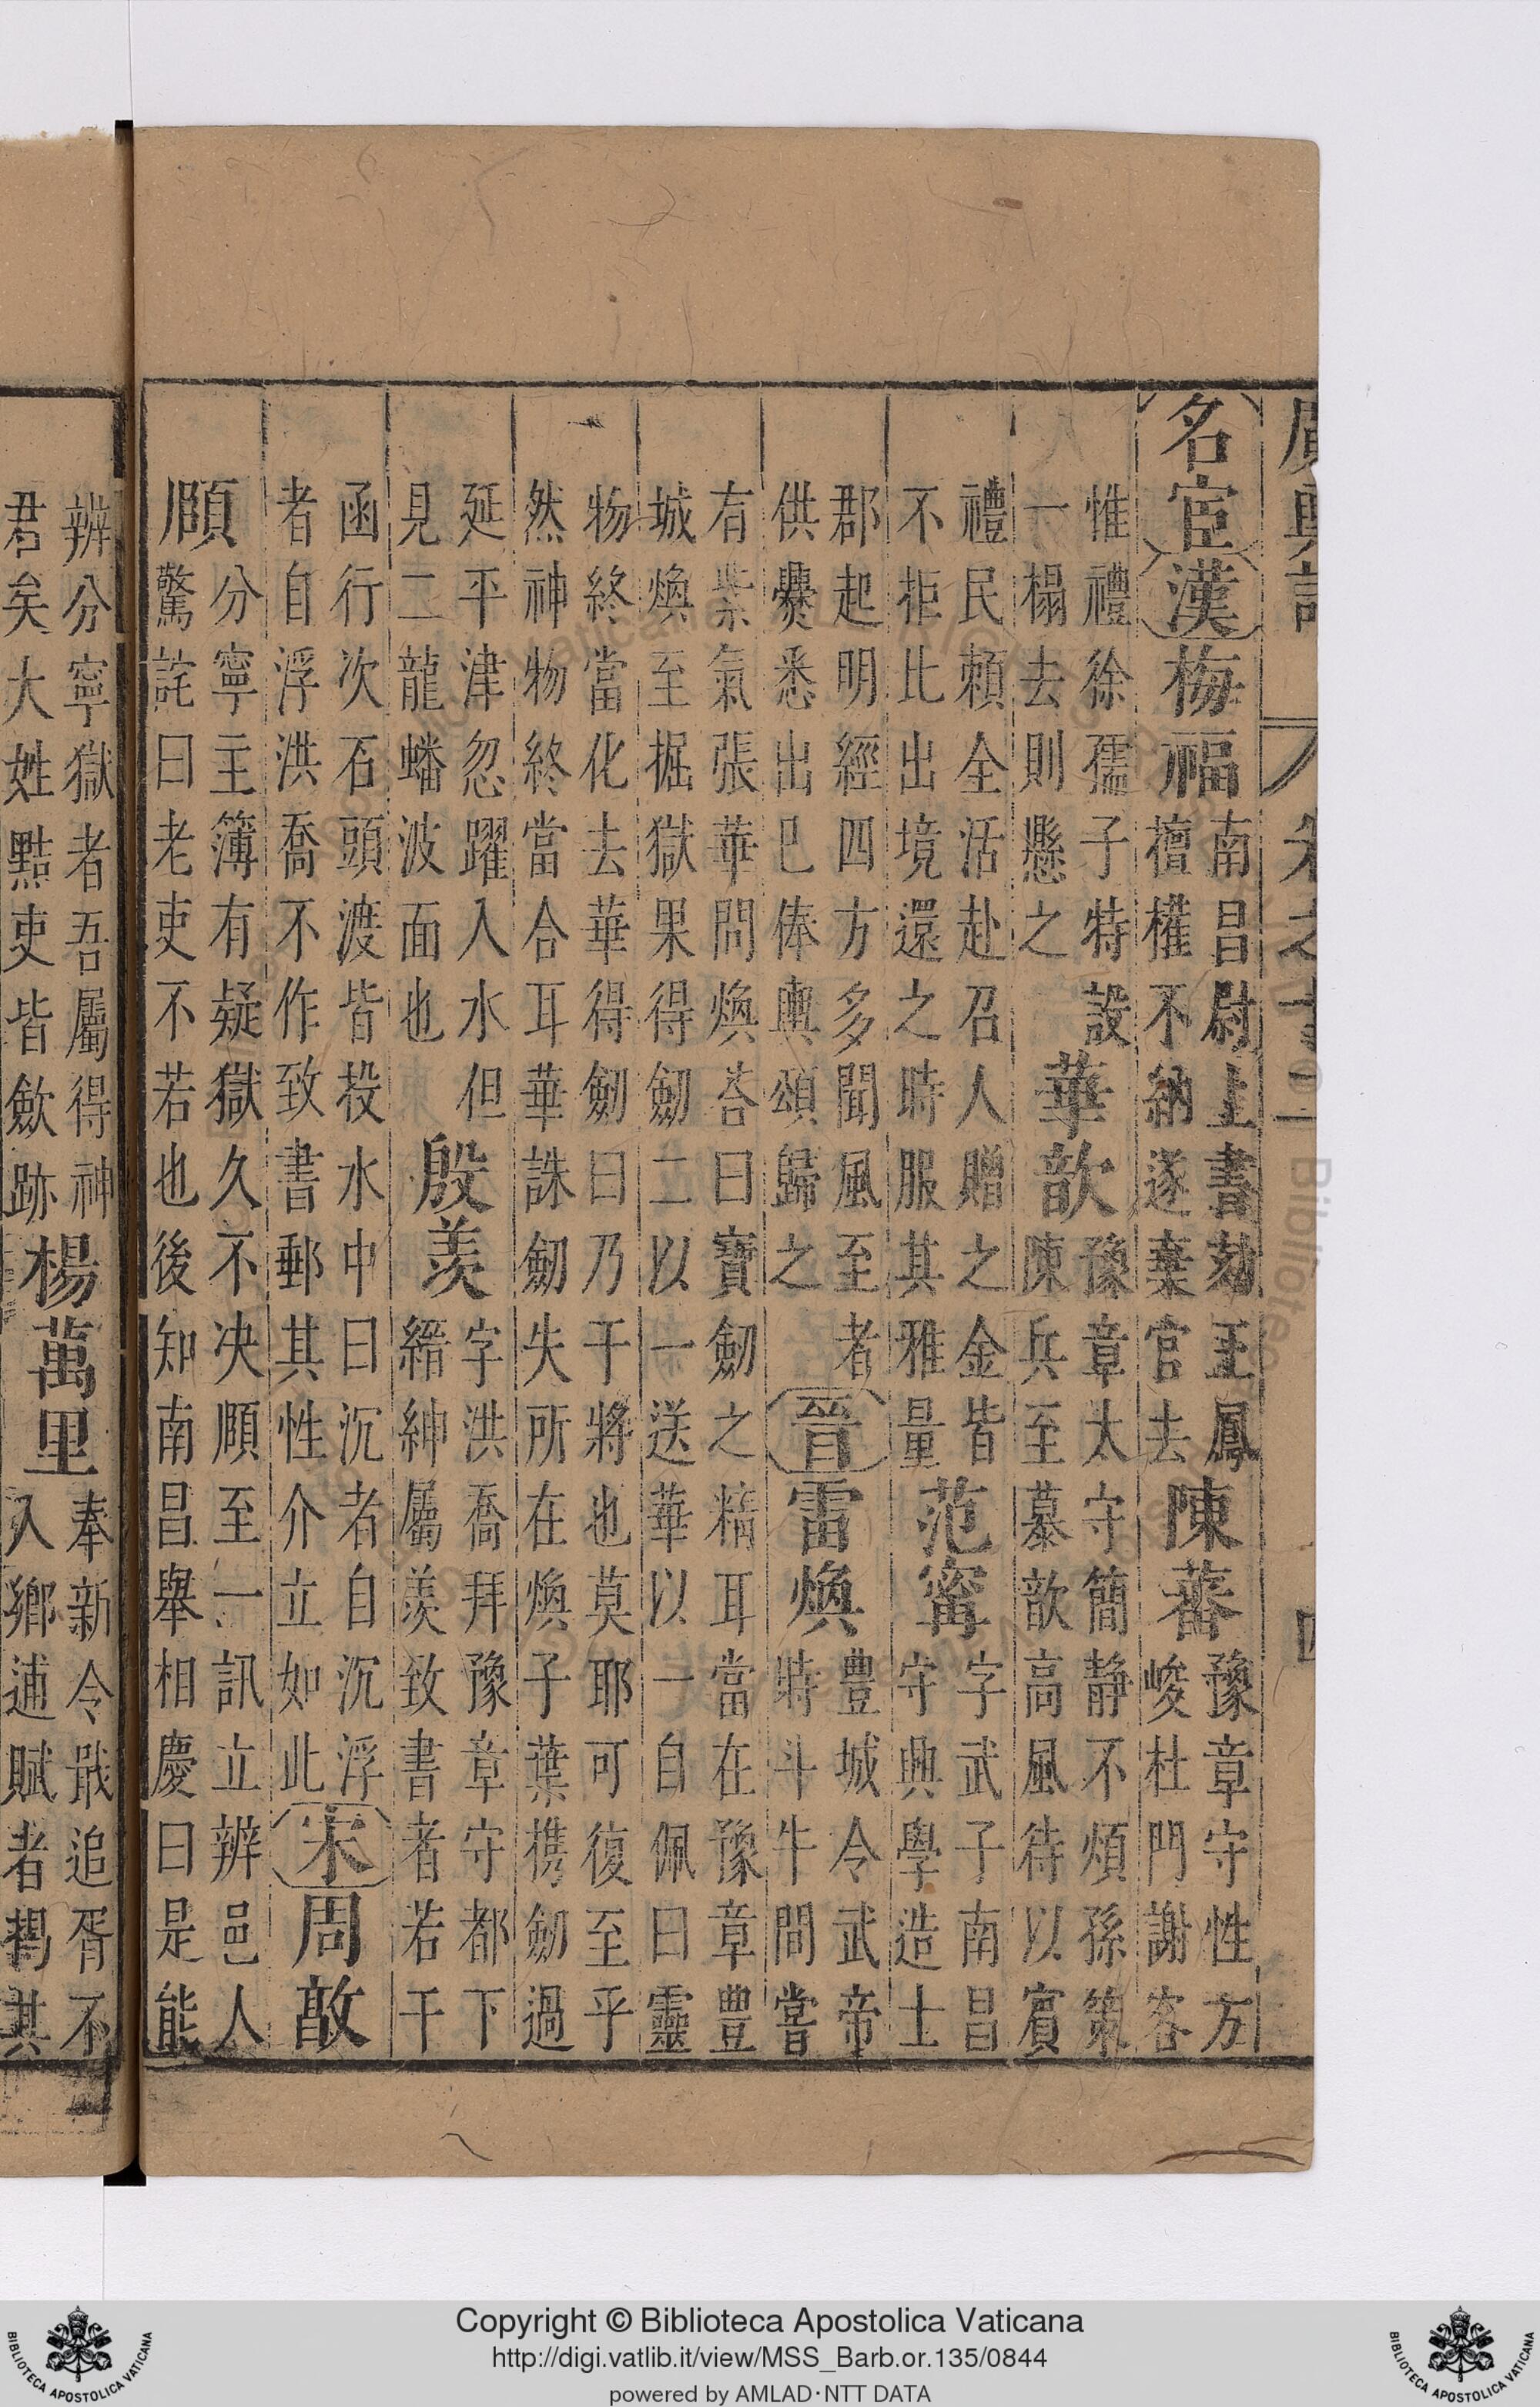 廣輿記 卷之十二 四
名宦 漢 梅福 南昌尉上書劾王鳳擅權不納遂棄官去 陳蕃 豫章守性方峻杜門謝客
惟禮徐孺子特設一榻去則懸之 華歆 豫章太守簡静不煩孫策陳兵至慕歆高風待以賓
禮民賴全活赴召人贈之金皆不拒比出境還之時服其雅量 范寗 字武子南昌守興學造士
郡起明經四方多聞風至者供爨悉出已俸輿頌歸之 晉 雷煥 豐城令武帝時斗牛間嘗
有紫氣張華問煥荅曰寶劒之精耳當在豫章豐城煥至掘獄果得劒二以一送華以一自佩曰靈
物終當化去華得劒曰乃干將也莫耶可復至乎然神物終當合耳華誅劒失所在煥子葉携劒過
延平津忽躍入水但見二龍蟠波面也 殷羡 字洪喬拜豫章守都下縉紳屬羡致書者若干
函行次石頭渡皆投水中曰沉者自沉浮者自浮洪喬不作致書郵其性介立如此 宋 周敦
頤 分寧主簿有疑獄久不决頤至一訊立辨邑人驚詫曰老吏不若也後知南昌舉相慶曰是能
辨分寧獄者吾屬得神君矣大姓黠吏皆歛跡 楊萬里 奉新令戢追胥不入鄉逋賦者揭其
Copyright © Biblioteca Apostolica Vaticana
http://digi.vatlib.it/view/MSS_Barb.or.135/0844
powered by AMLAD·NTT DATA
BIBLIOTECA APOSTOLICA VATICANA
BIBLIOTECA APOSTOLICA VATICANA